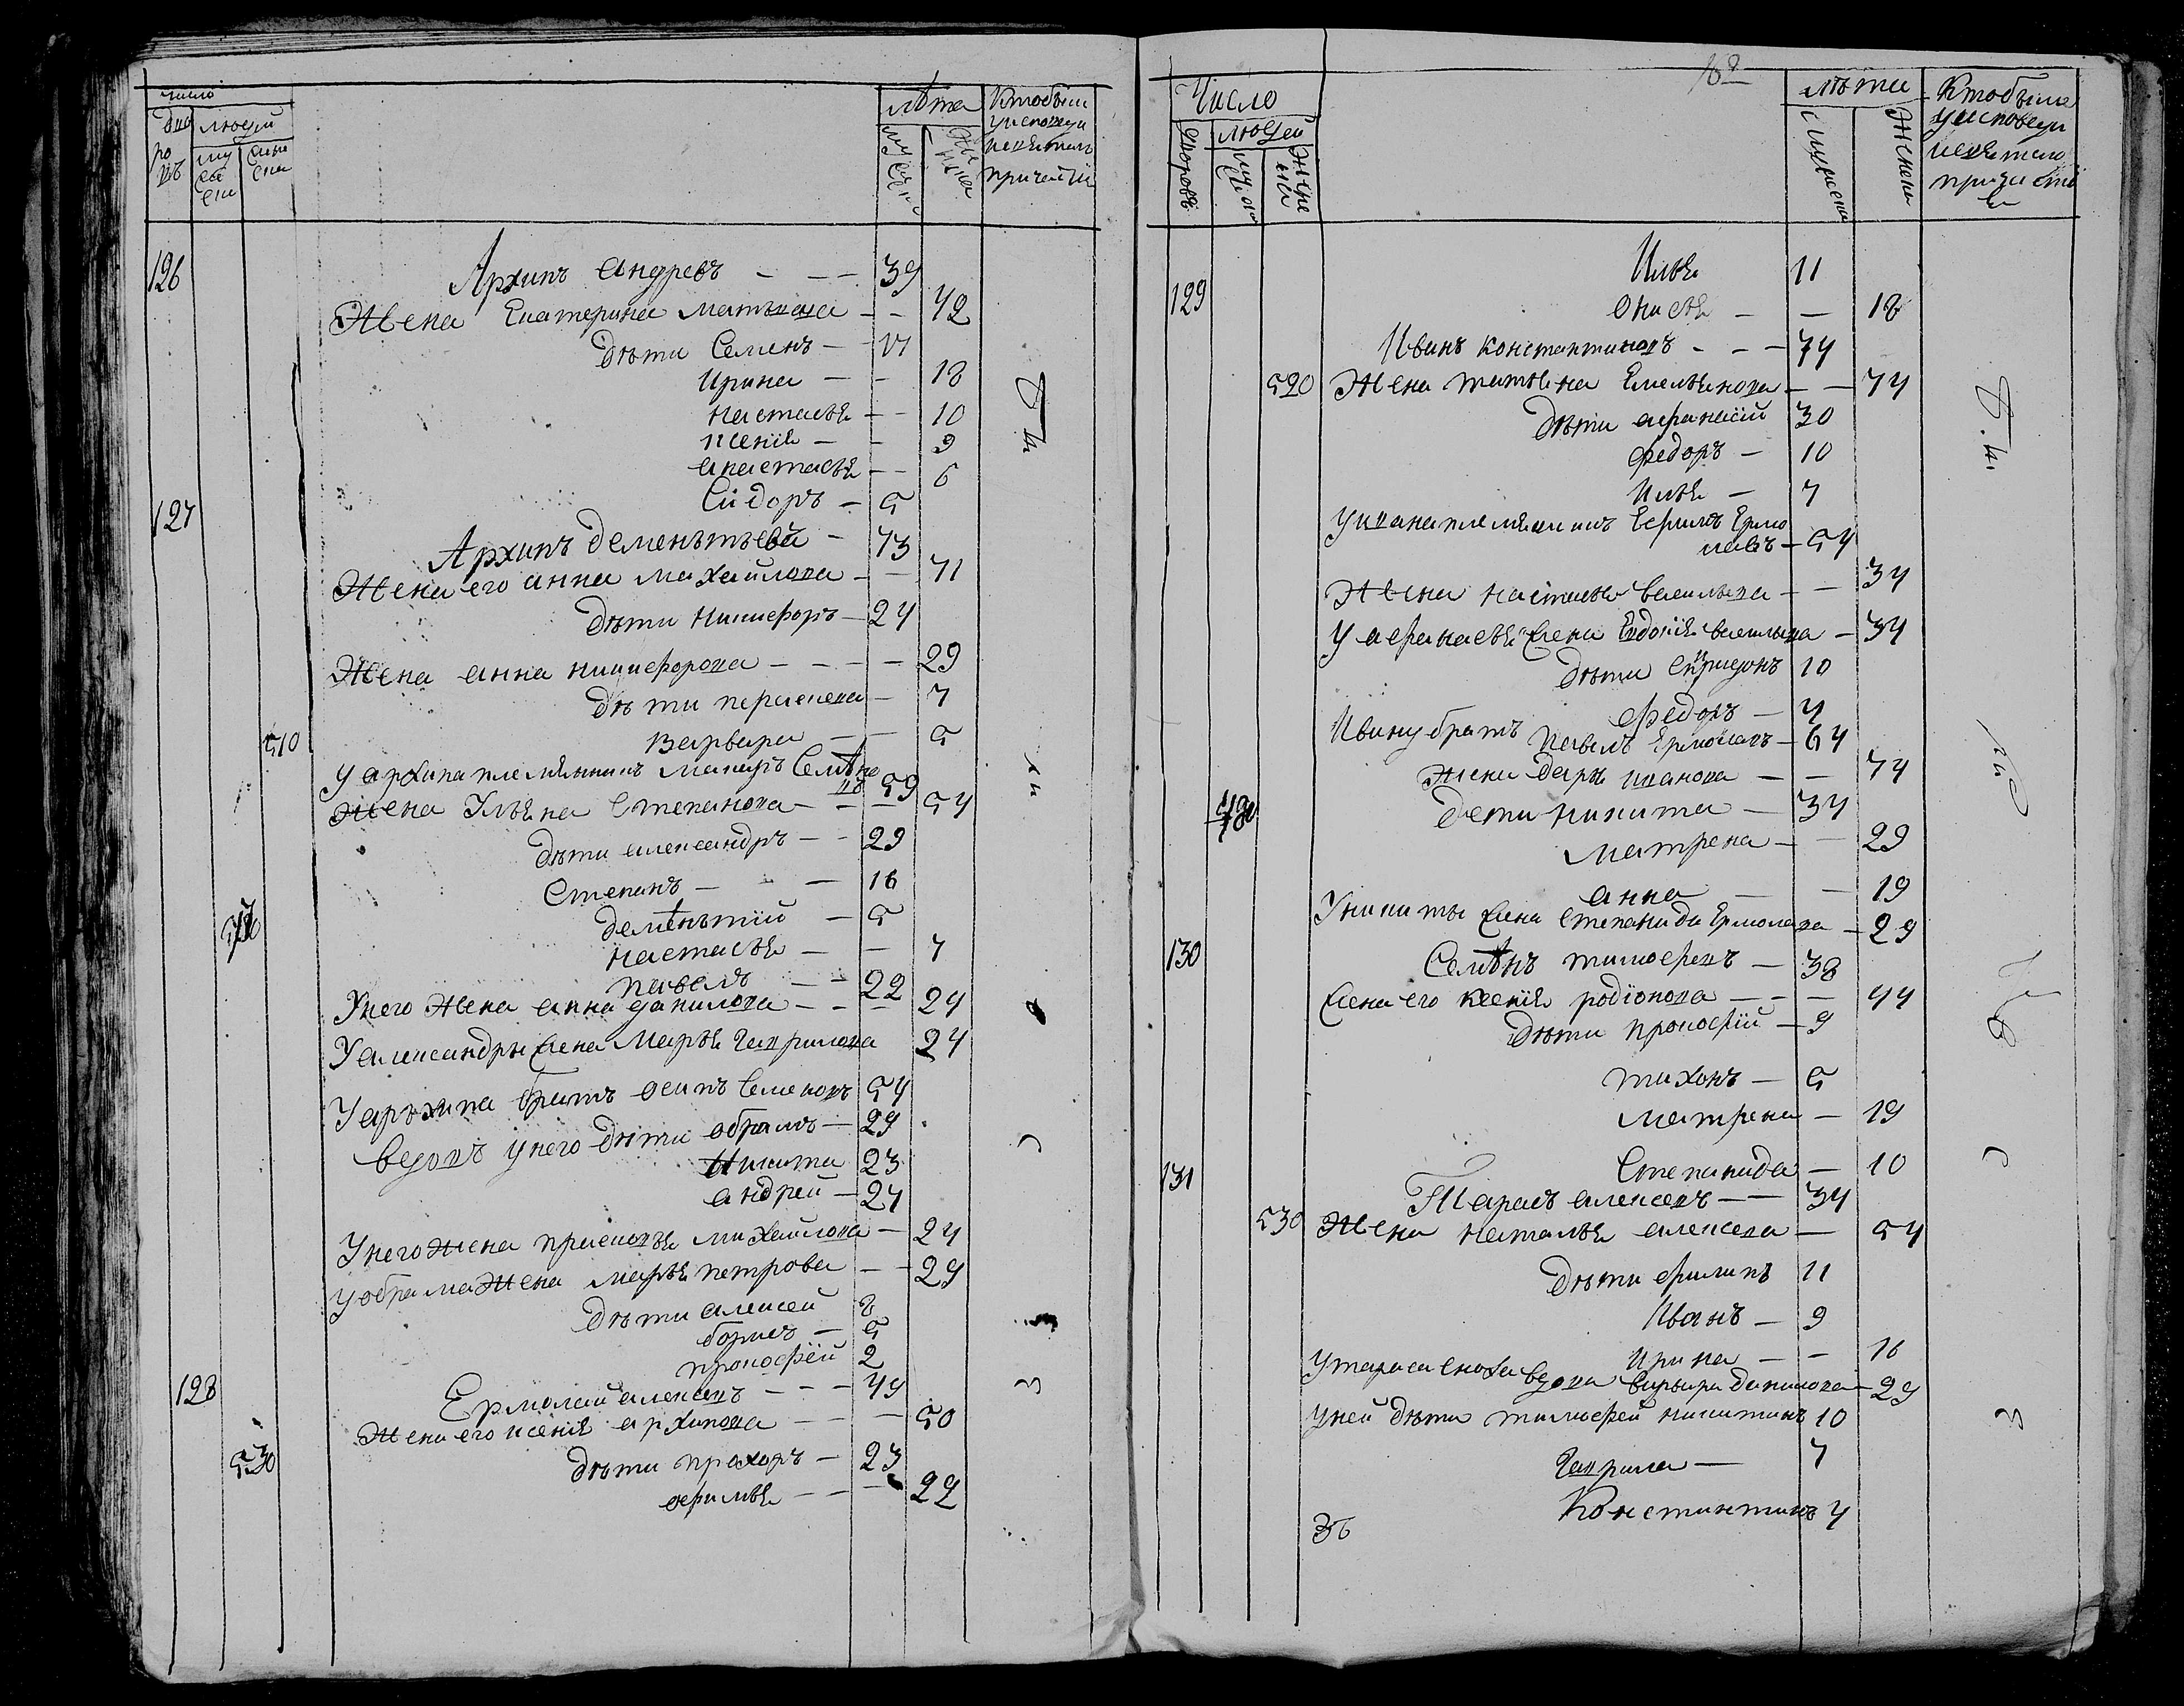 число
дворовъ людей
мужески женски
лѣта
мужески женски
Кто были у исповеди и святаго причастия
126 Архипъ андревъ - - - 39
Жена Екатерина матвѣева - - 42
Дѣти Семенъ - 17
Ирина - - 18
настасья - - 10
ксенія - - 9
анастасья - - 6
Сидоръ - 5
127
Архипъ дементьевъ - 73
Жена его анна михайлова - - 71
Дѣти никифоръ - 24
Жена анна никифорова - - - - 29
Дѣти парасковя - 7
510 варвара - - 5
у архипа племянникъ макаръ Семѣно
въ 59
Жена Ульяна Степанова - - - 54
Дѣти александръ - - 29
Степанъ - - - 16
дементий - 5
настасья - - 7
павелъ - - 22
У него жена анна данилова - - - 24
У александры жена Марья Гаврилова 24
У архипа братъ осипъ Семеновъ 54
вдовъ у него дѣти абрамъ - 29
Никита 23
андрей - 24
У него жена прасковья михайлова - 24
у абрама жена марья петрова - - 29
Дѣти алексей 8
борисъ - 5
прокофей 2
128
Ермолай алексевъ - - - 49
Жена его ксенія архипова - - - 50
530 Дѣти прохоръ - 23
афимья - - - 22
Число
дворовъ людей
мужески женски
лѣта
мужески женски
Кто были у исповеди и святаго причастия
Илья 11
129 анисья - - 18
Иванъ константиновъ - - - 74
520 Жена татьяна Емельянова - - 74
Дѣти афанасій 30
федоръ - 10
Илья - 7
У ивана племянникъ Ефимъ Ермо
лаевъ - 54
Жена настасья васильева - - 34
У афанасья жена Евдокія васильева - 34
Дѣти Спиридонъ 10
федоръ - 4
Ивану братъ павелъ Ермолаевъ - 64
жена дарья иванова - - 74
дети никита - 34
матрена - - 29
анна - - 19
У никиты жена степанида Ермолаева - 29
130 Семѣнъ тимофеевъ - 38
жена его ксенія родионова - - - 44
Дѣти прокофій - 9
тихонъ - 5
матрена - 19
Степанида - 10
131
Тарасъ алексевъ - - 34
530 Жена наталья алексева - 54
Дѣти филипъ 11
Иванъ - 9
Ирина - - 16
У тараса сноха вдова варвара данилова - 29
У ней дѣти тимофей никитинъ 10
Гаврила - 7
Константинъ 4